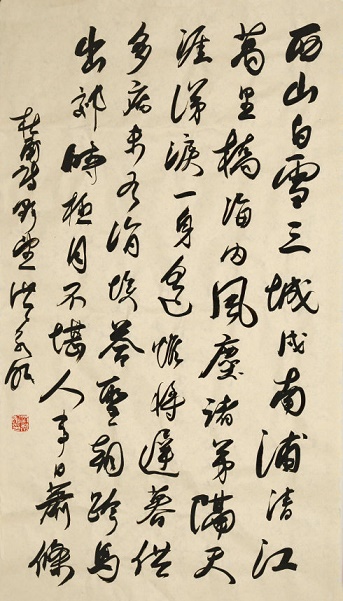 西山白雪三城戍南浦清江
萬里橋海內風塵諸弟隔天
涯涕淚一身遥惟將遲暮供
多病未有涓埃答聖朝跨馬
出郊時極目不堪人事日蕭條
杜甫詩野望